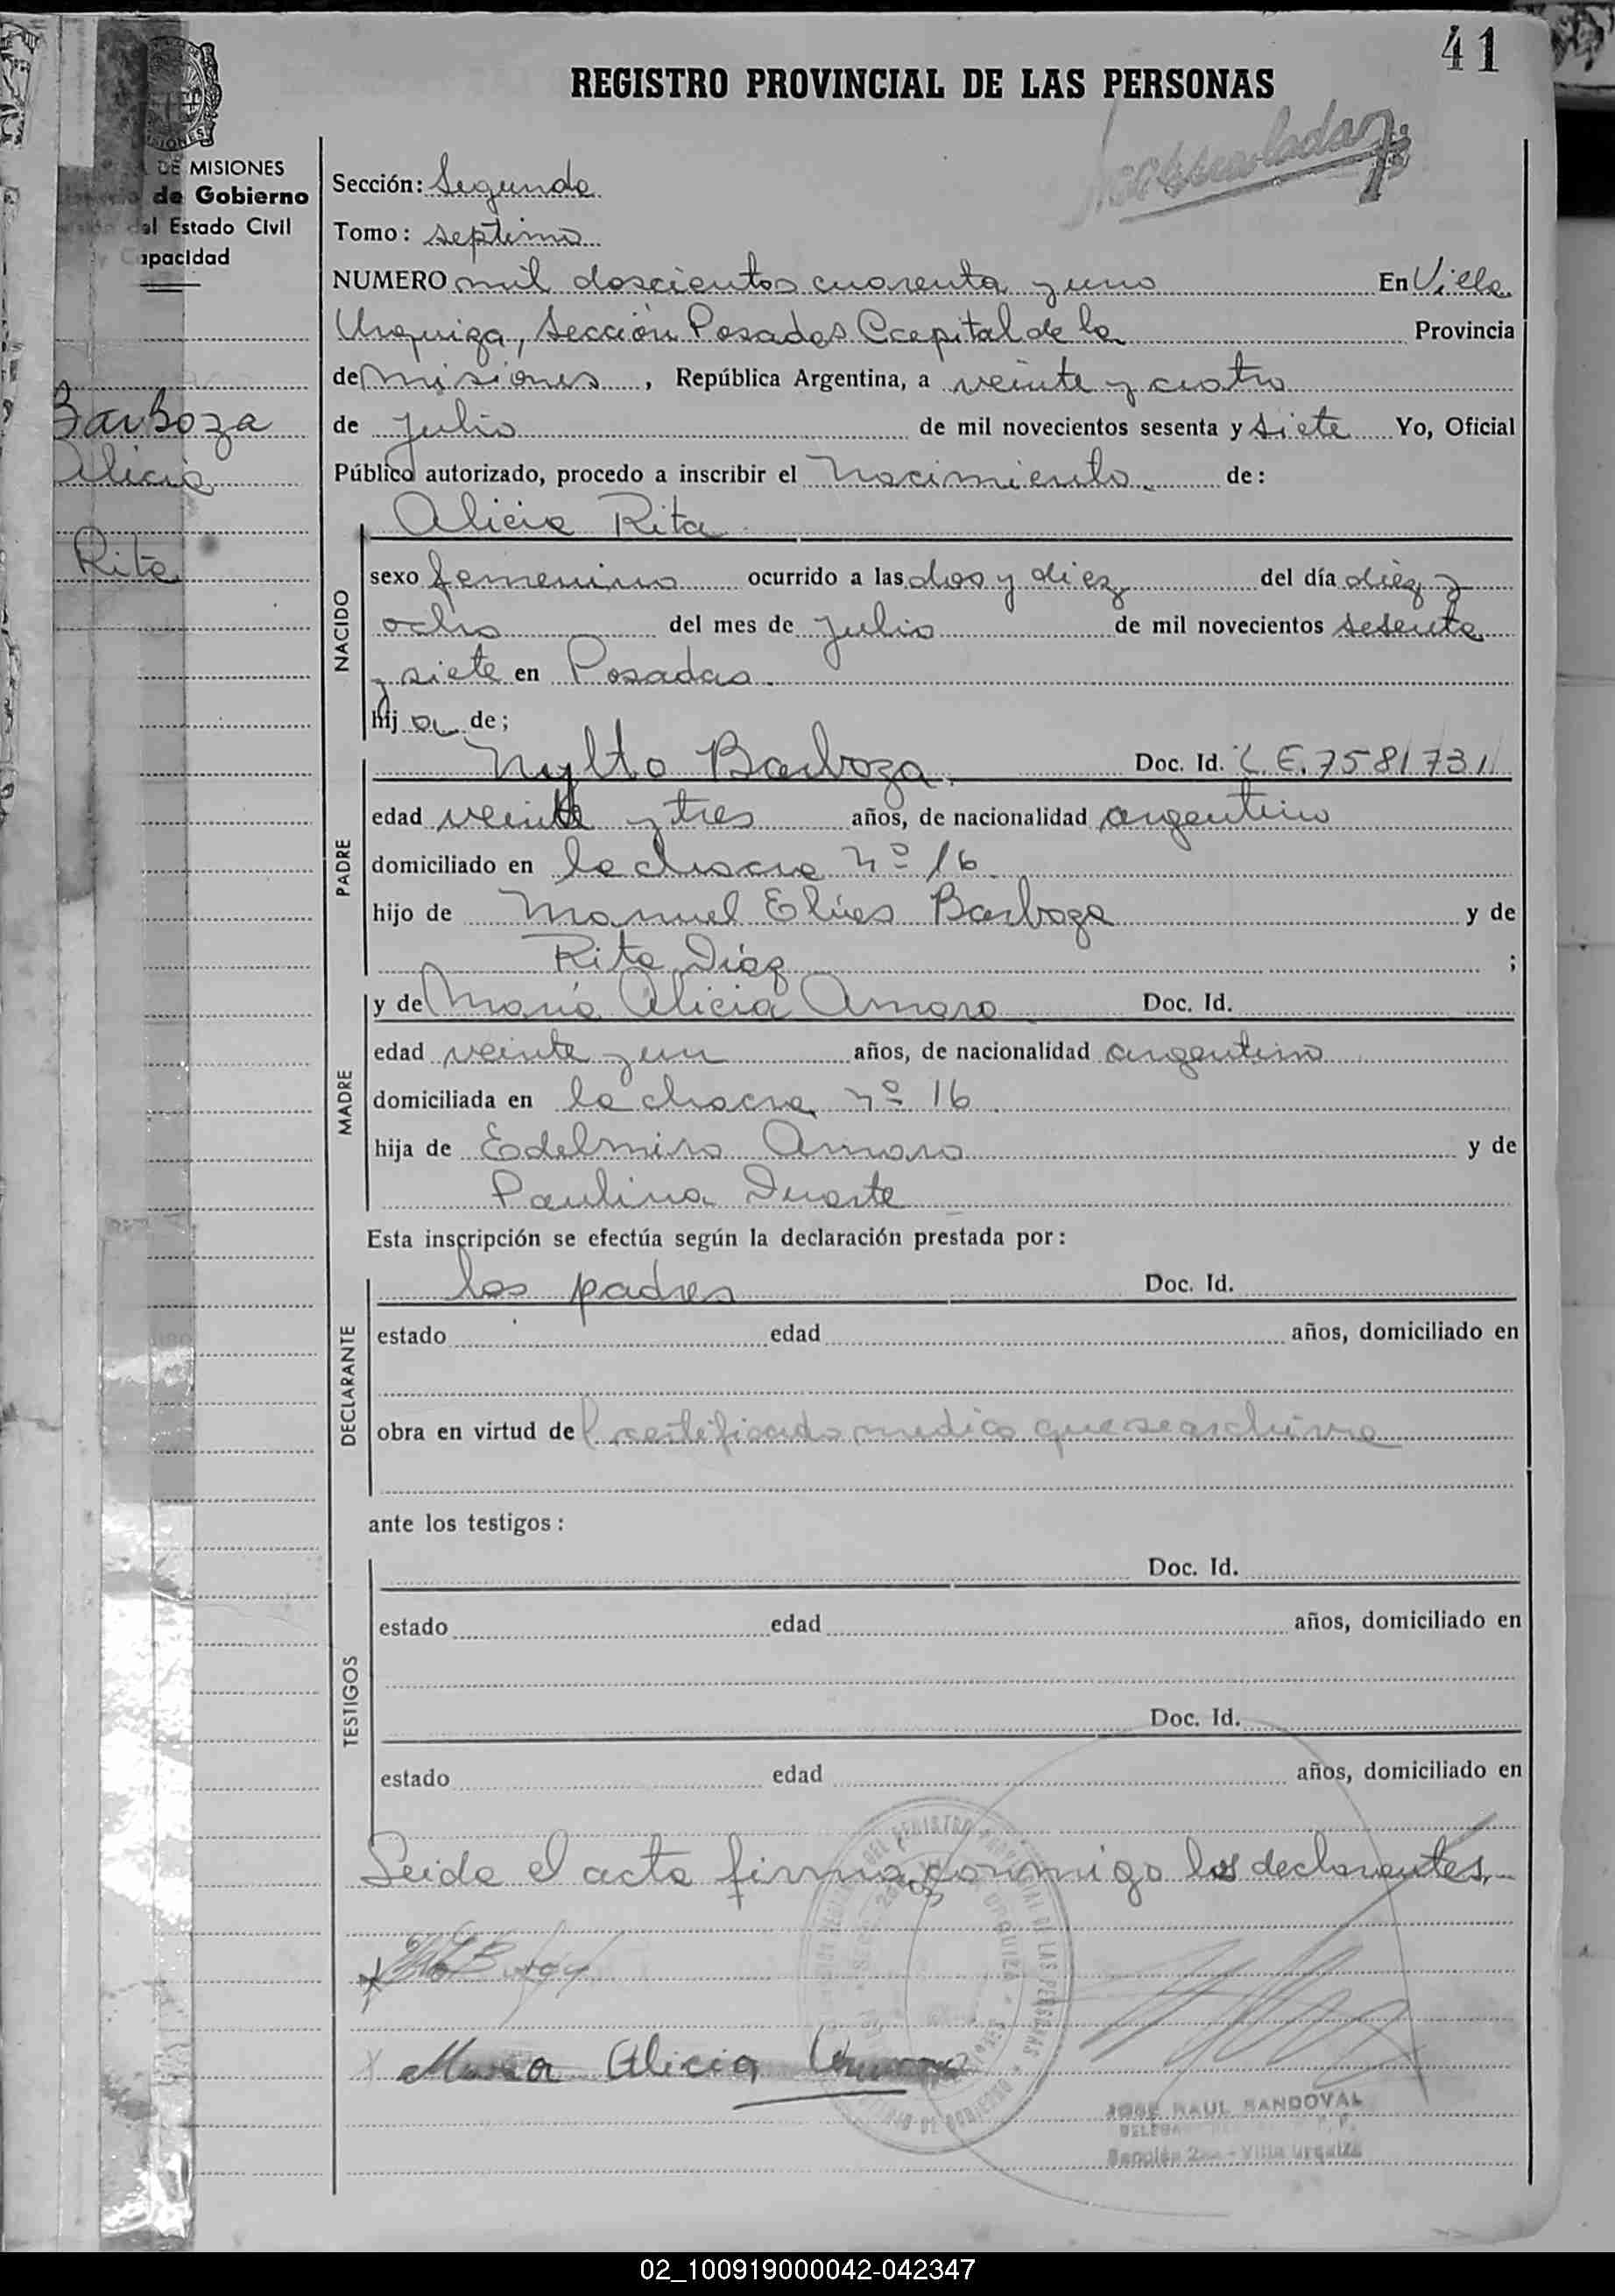 41
REGISTRO PROVINCIAL DE LAS PERSONAS
DE MISIONES
de Gobierno
del Estado Civil
y Capacidad
Barboza
Alicia
Rita
Sección: Segunda
Tomo: septimo
NUMERO mil doscientos cuarenta y uno En Villa
Urquiza, Sección Posadas Capital de la Provincia
de Misiones, República Argentina, a veinte y cuatro
de Julio de mil novecientos sesenta y siete Yo, Oficial
Público autorizado, procedo a inscribir el Nacimiento de:
Alicia Rita
NACIDO
sexo femenino ocurrido a las dos y diez del día diez y
ocho del mes de Julio de mil novecientos sesenta
y siete en Posadas.
hija de;
PADRE
Nylto Barboza. Doc. Id. L.E. 7581731
edad veinte y tres años, de nacionalidad argentino
domiciliado en la chacra Nº 16.
hijo de Manuel Elías Barboza y de
Rita Diaz ;
MADRE
y de María Alicia Amaro Doc. Id.
edad veinte y un años, de nacionalidad argentina
domiciliada en la chacra Nº 16.
hija de Edelmiro Amaro y de
Paulina Duarte
Esta inscripción se efectúa según la declaración prestada por:
DECLARANTE
los padres Doc. Id.
estado edad años, domiciliado en
obra en virtud del certificado medico que se archiva
ante los testigos:
TESTIGOS
Doc. Id.
estado edad años, domiciliado en
Doc. Id.
estado edad años, domiciliado en
Leida el acta firma conmigo los declarantes.
Maria Alicia
JOSE RAUL SANDOVAL
Sección 2da - Villa Urquiza
02_100919000042-042347